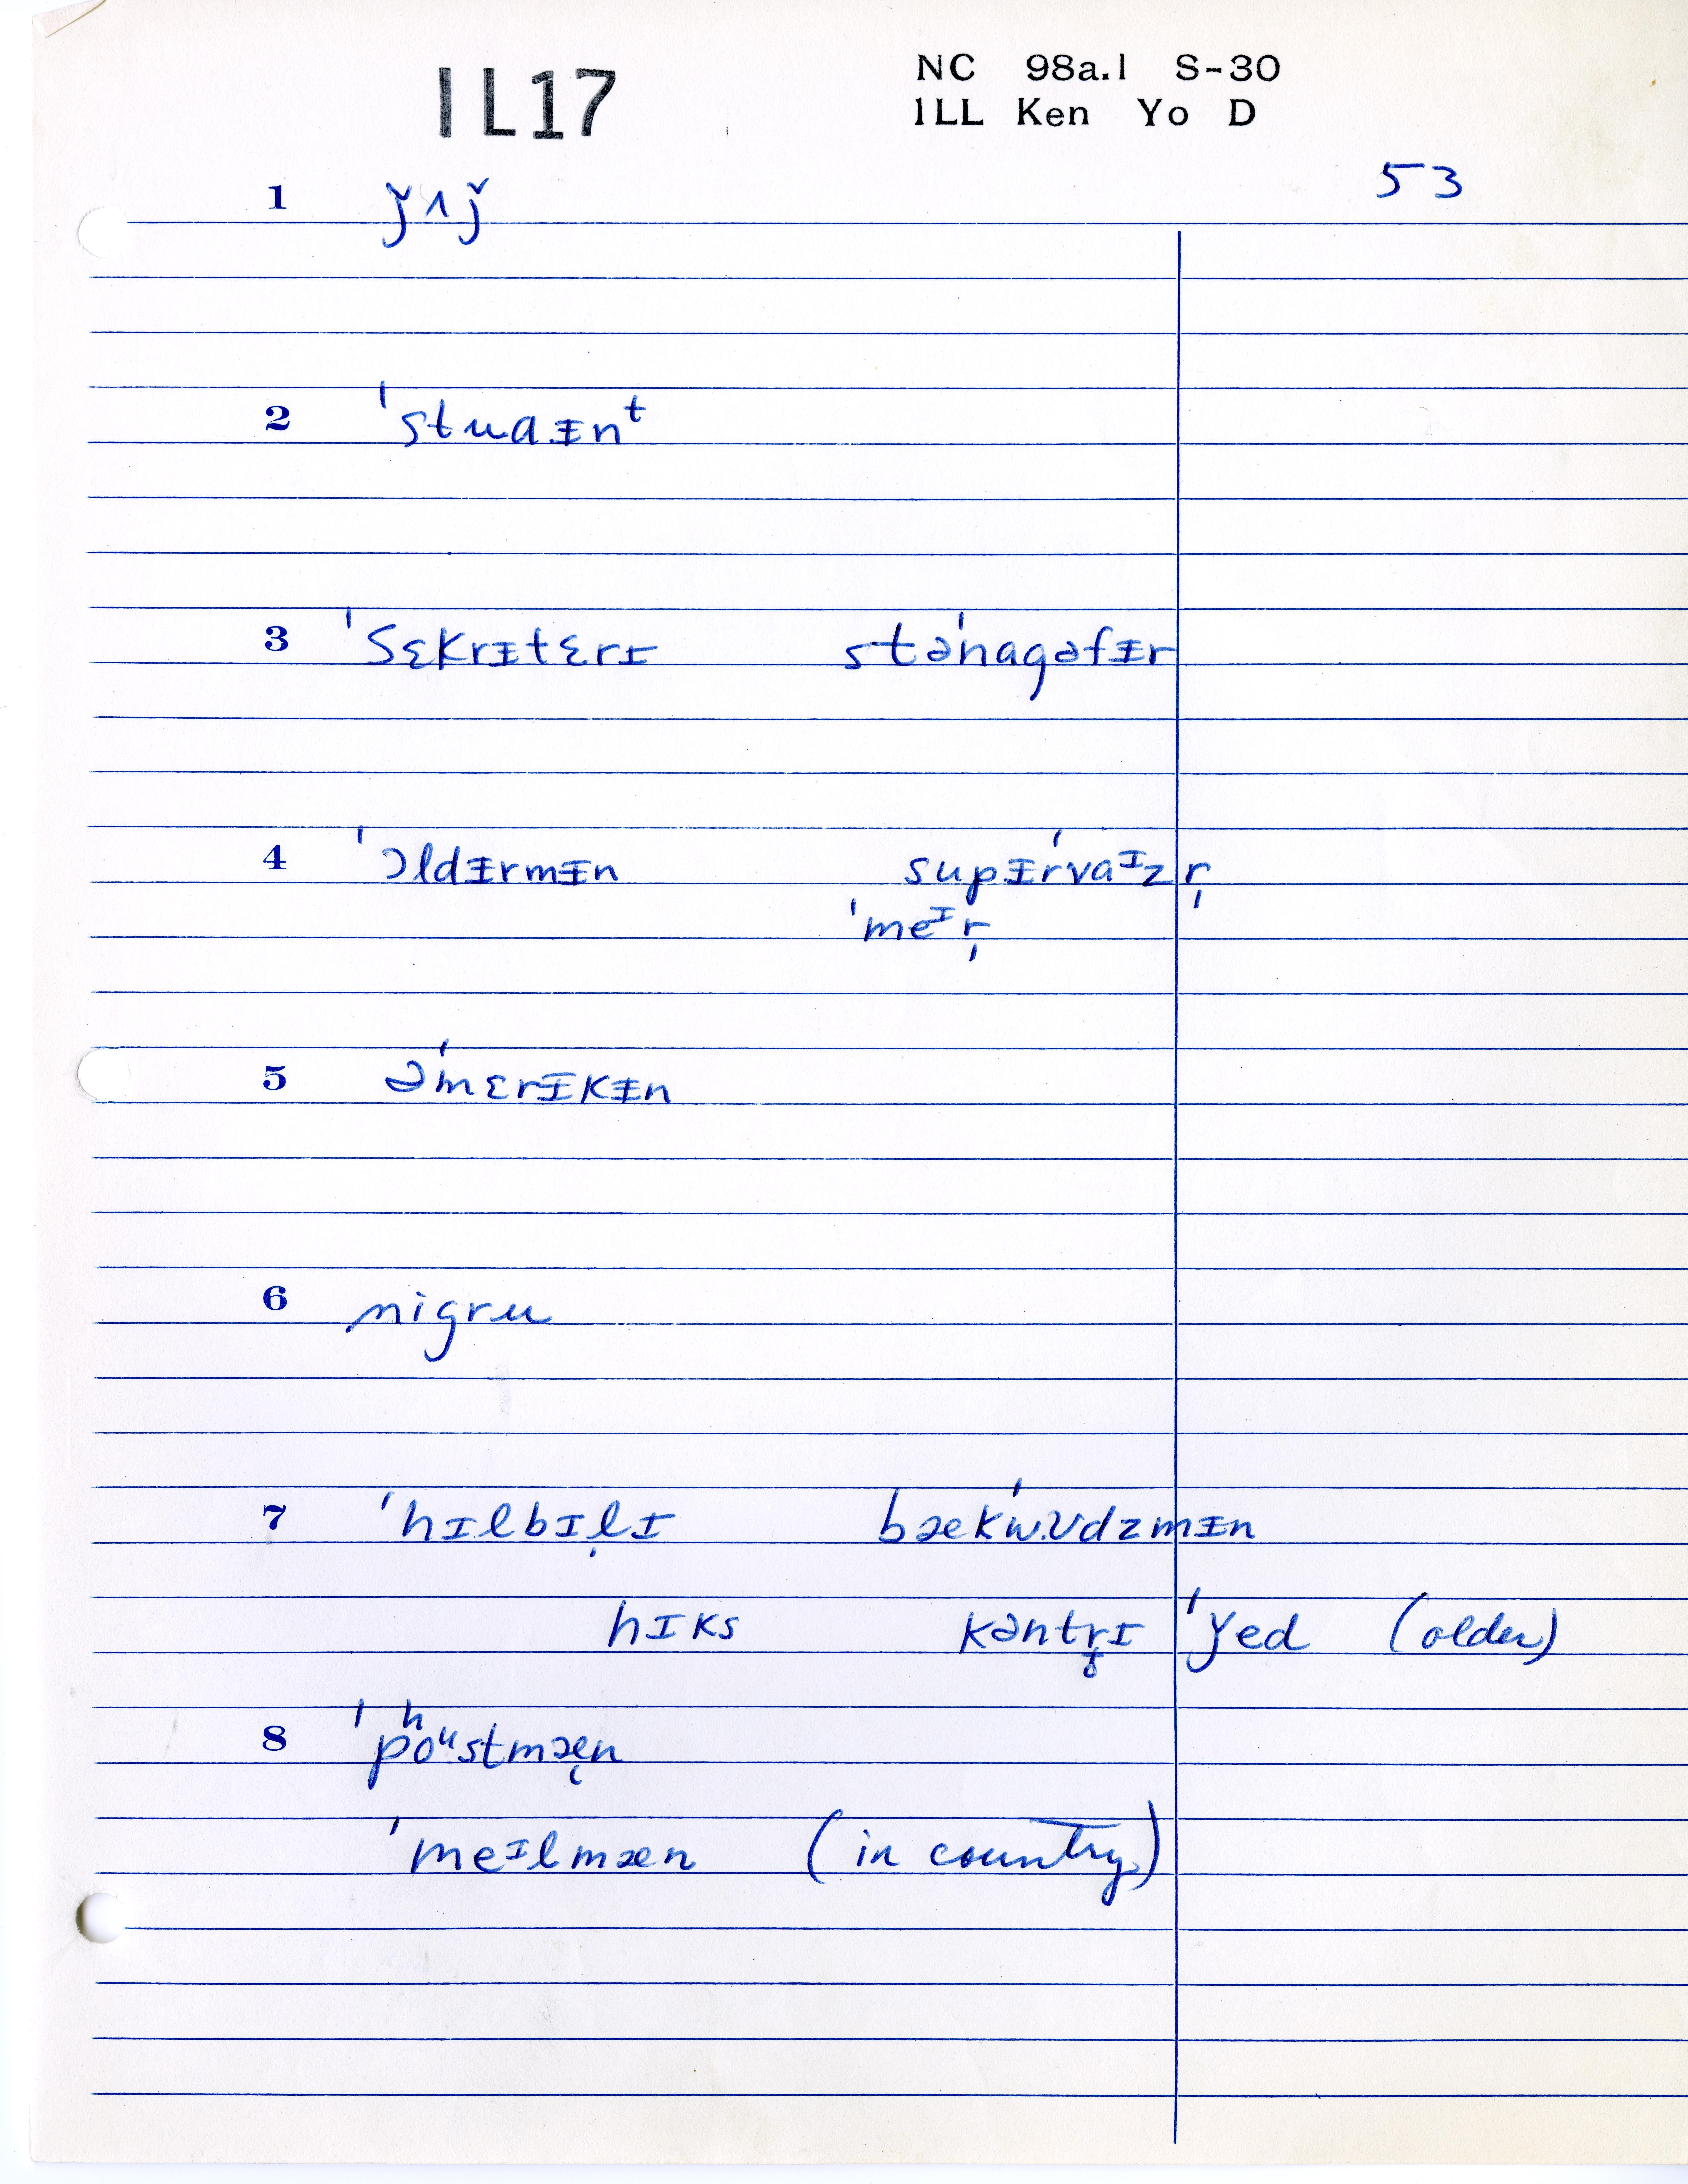 IL17
NC 98a.1 S-30
ILL Ken Yo D
53
1 ǰʌǰ
2 ˈstudᵻnᵗ
3 ˈsɛkrɪtɛrɪ stəˈnagəfᵻr
4 ˈɔldᵻrmᵻn supᵻrˈvaᶦzr̩
ˈmeᶦr̩
5 əˈmɛrɪkᵻn
6 nigru
7 ˈhɪlbɪl̩ɪ bækˈwʊdzmᵻn
hɪks kəntr̥ɪ ˈyed (older)
8 ˈpʰoᵘstmæ̨n
ˈmeᶦlmæn (in country)